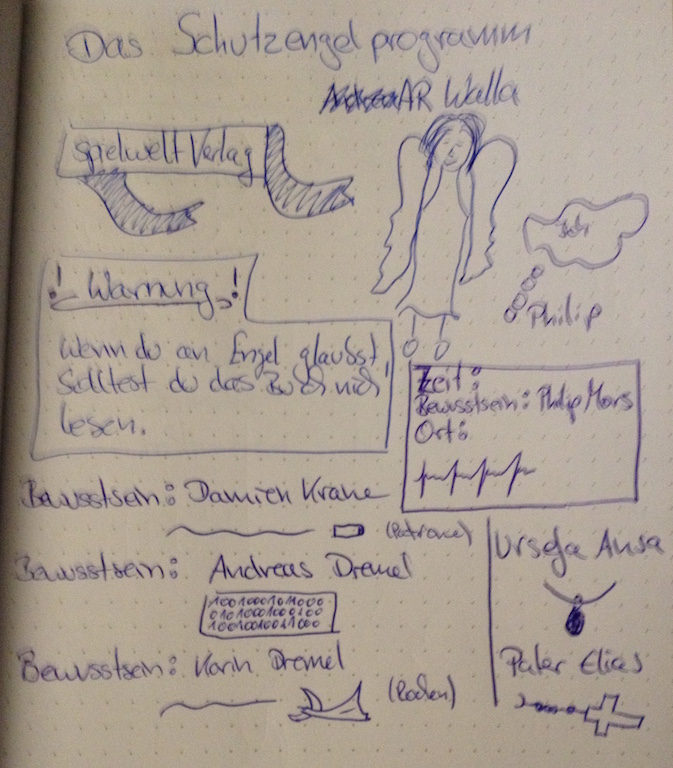 Das Schutzengelprogramm
AR Walla
Spielwelt Verlag
Ich
Philip
! Warnung !
Wenn du an Engel glaubst,
Solltest du das Buch nich
lesen.
Zeit:
Bewusstsein: Philip Mors
Ort:
Bewusstsein: Damien Krane
(Patrone)
Bewusstsein: Andreas Dremel
Bewusstsein: Karin Dremel
Ursela Ansa
Pater Elias